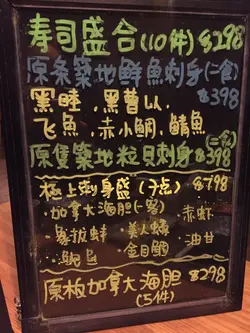 寿司盛合(10件) $298
原条築地鮮魚刺身(二食)
$398
黑睦、黑曹以、
飞魚、赤小鯛、鯖魚
原隻築地粒贝刺身(二食) $398
極上刺身盛(7点) $798
·加拿大海胆(一客) ·赤虾
·象拔蚌 ·美人蠔 ·油甘
·鯛魚 ·金目鯛
原板加拿大海胆 $298
(5件)